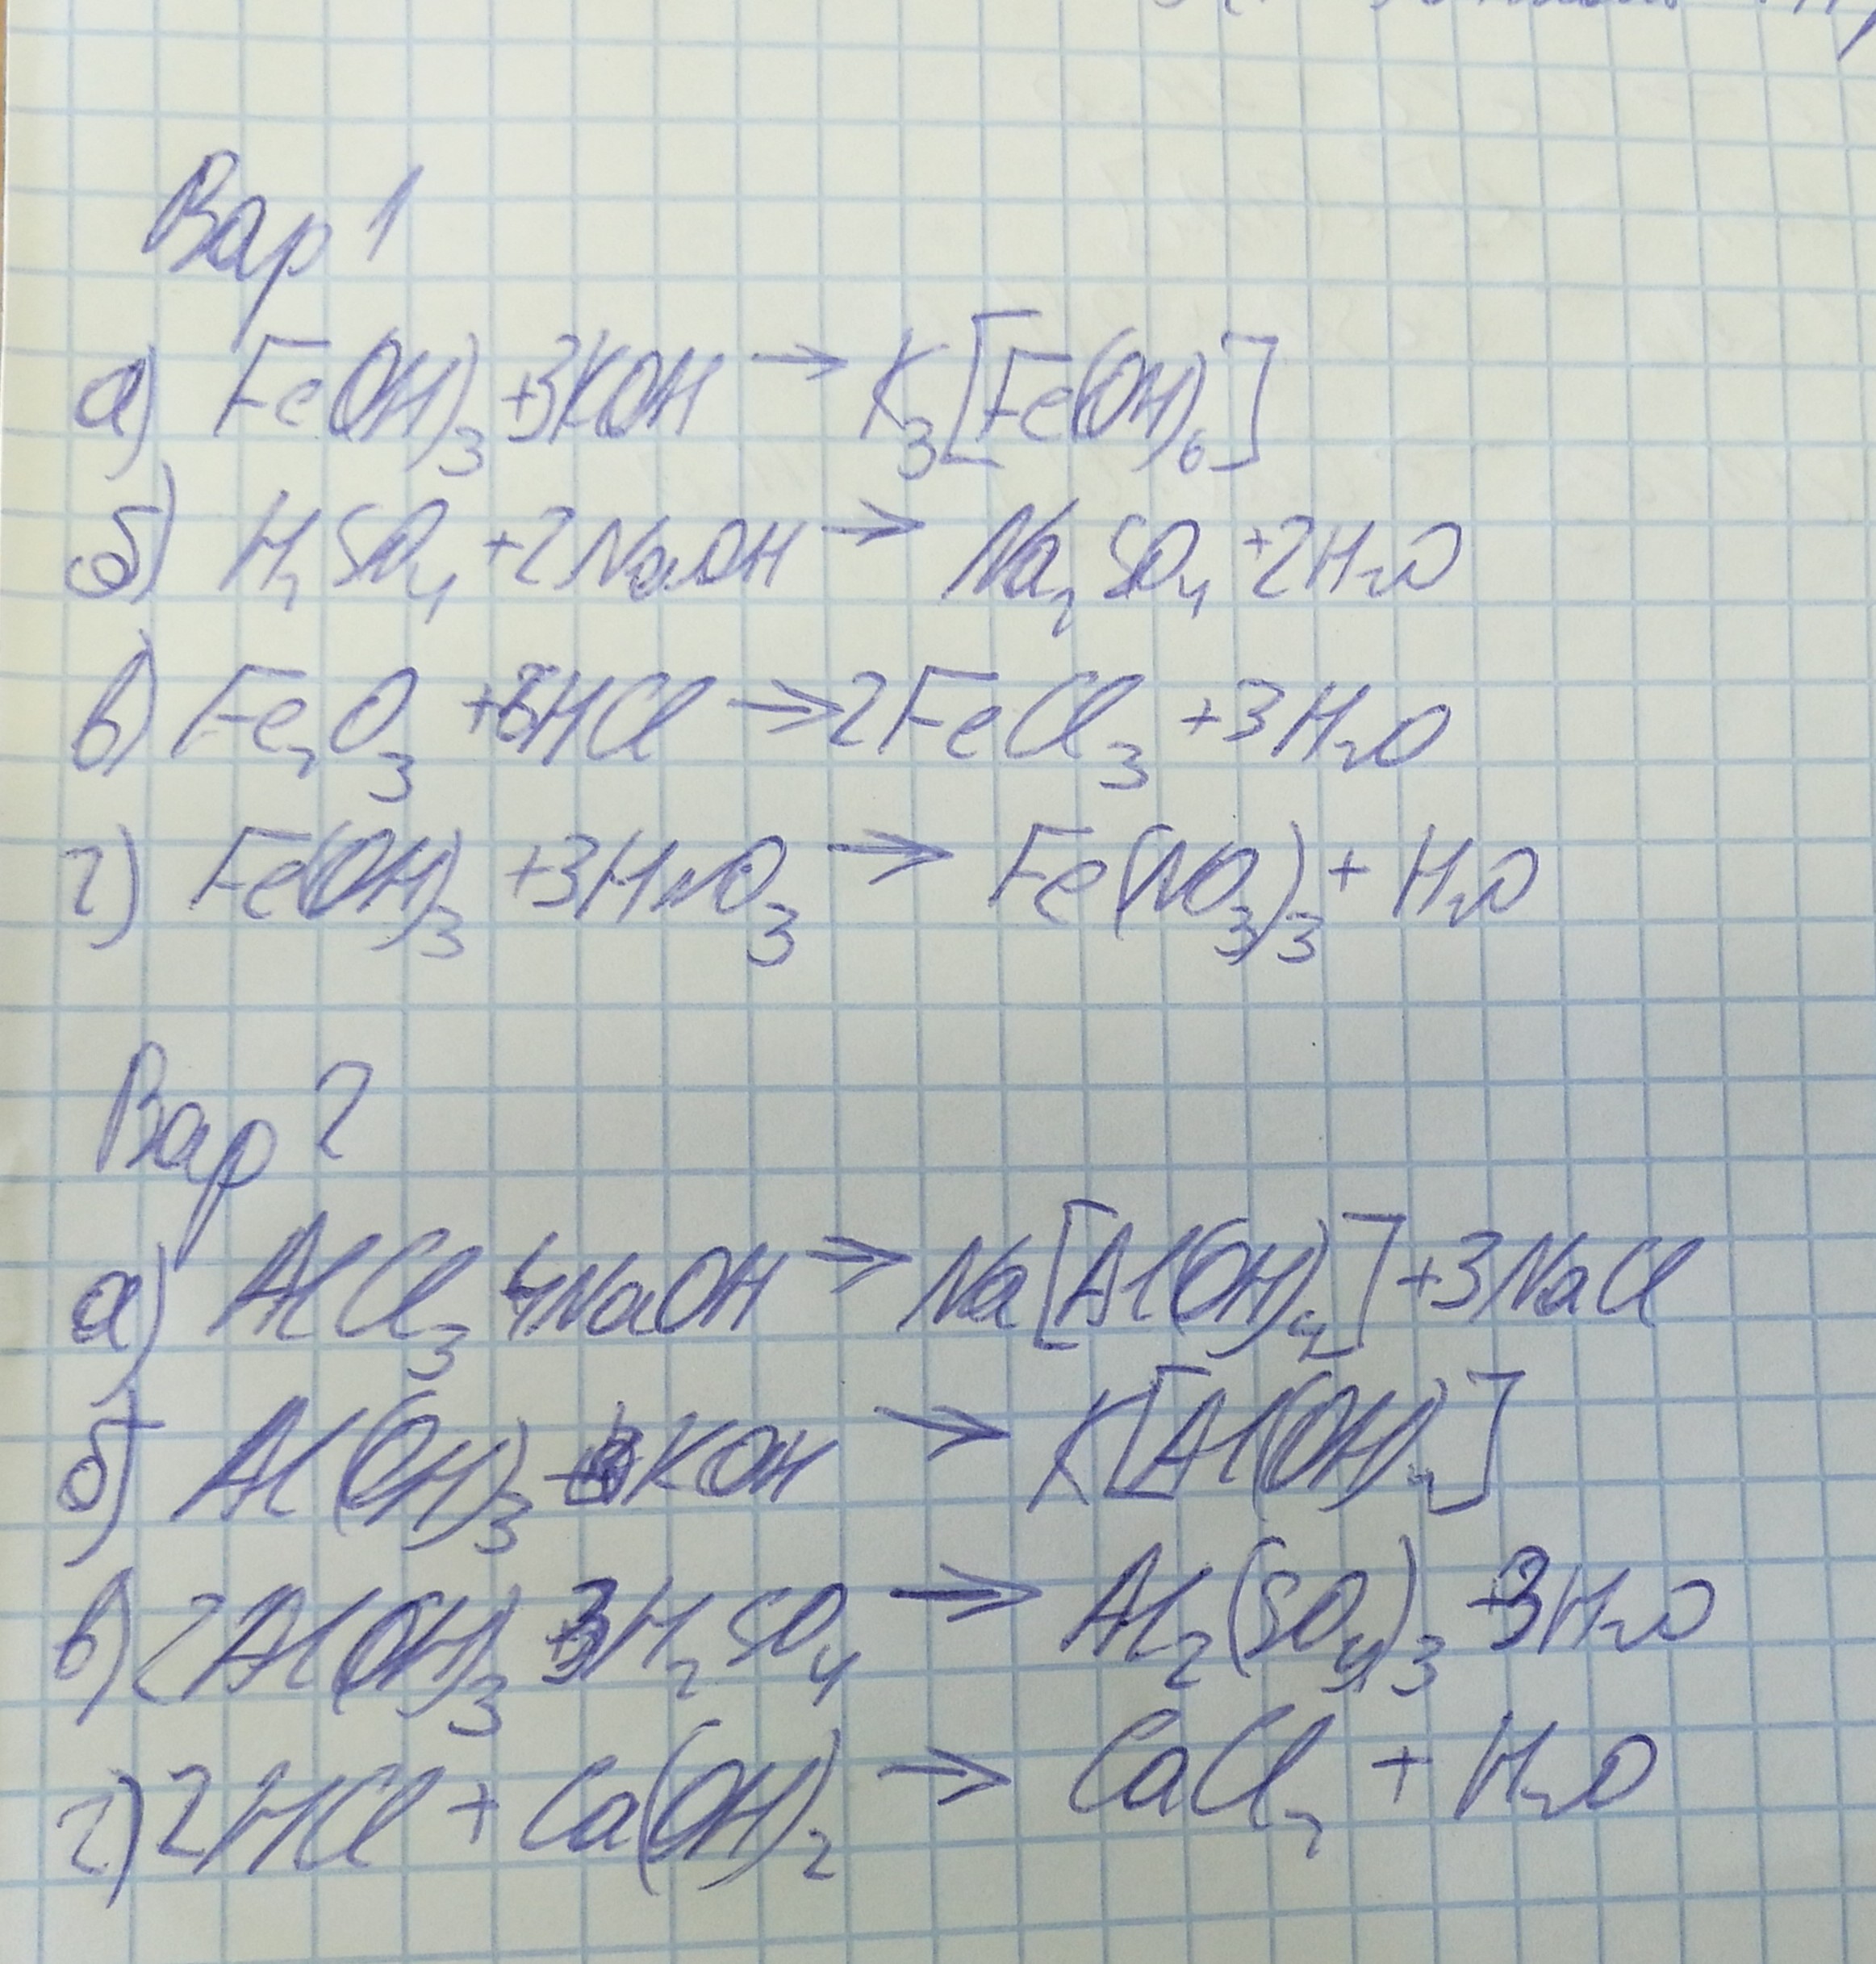 Вар 1
а) Fe(OH)₃ +3KOH → K₃[Fe(OH)₆]
б) H₂SO₄ +2NaOH → Na₂SO₄ +2H₂O
в) Fe₂O₃ +6HCl → 2FeCl₃ +3H₂O
г) Fe(OH)₃ +3HNO₃ → Fe(NO₃)₃ + H₂O
Вар 2
а) AlCl₃ +4NaOH → Na[Al(OH)₄] +3NaCl
б) Al(OH)₃ + KOH → K[Al(OH)₄]
в) 2Al(OH)₃ +3H₂SO₄ → Al₂(SO₄)₃ +3H₂O
г) 2HCl + Ca(OH)₂ → CaCl₂ + H₂O